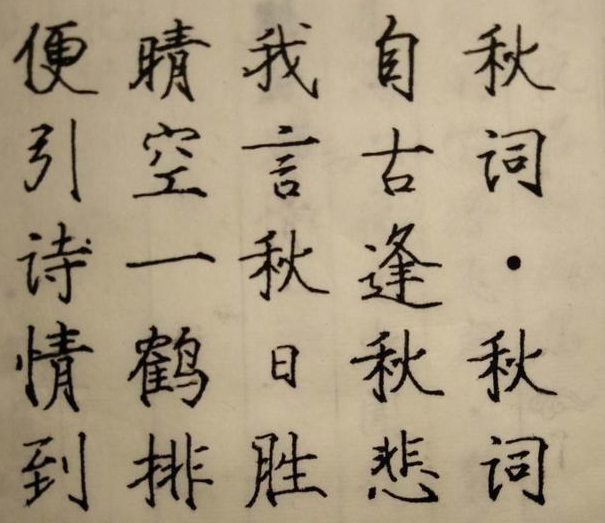 秋词·秋词
自古逢秋悲
我言秋日胜
晴空一鹤排
便引诗情到